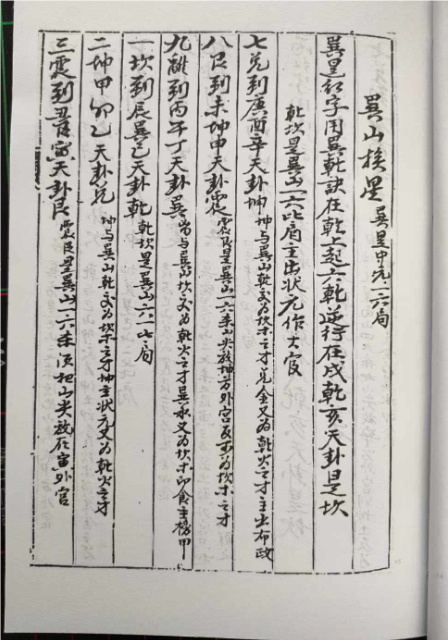 巽山挨星 巽是中元一六局
巽是紅字用巽乾訣在乾上起六乾逆行在戌乾亥天卦是坎
乾坎是巽山一六比局主出狀元作大官
七兌到庚酉辛天卦坤 坤与巽山乾交为坎水之才兌金又为乾火之才主出布政
八艮到未坤申天卦震 震艮是巽山一六来山尖放坤方外宮 为坎水之才
九離到丙午丁天卦巽 巽坎交为乾火之才巽水又为坎水印食主榜甲
一坎到辰巽巳天卦乾 乾坎是巽山一六比局
二坤甲卯乙天卦兌 坤与巽山乾交为坎水之才坤主狀元又为乾火之才
三震到丑艮寅天卦艮 震艮是巽山一六来須把山尖放在寅外宮